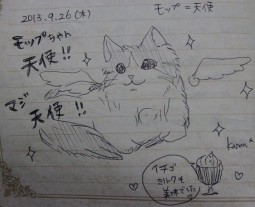 2013.9.26(木)
モップ=天使
モップちゃん
天使!!
マジ
天使!!
Karen
イチゴ
ミルクも
美味でした